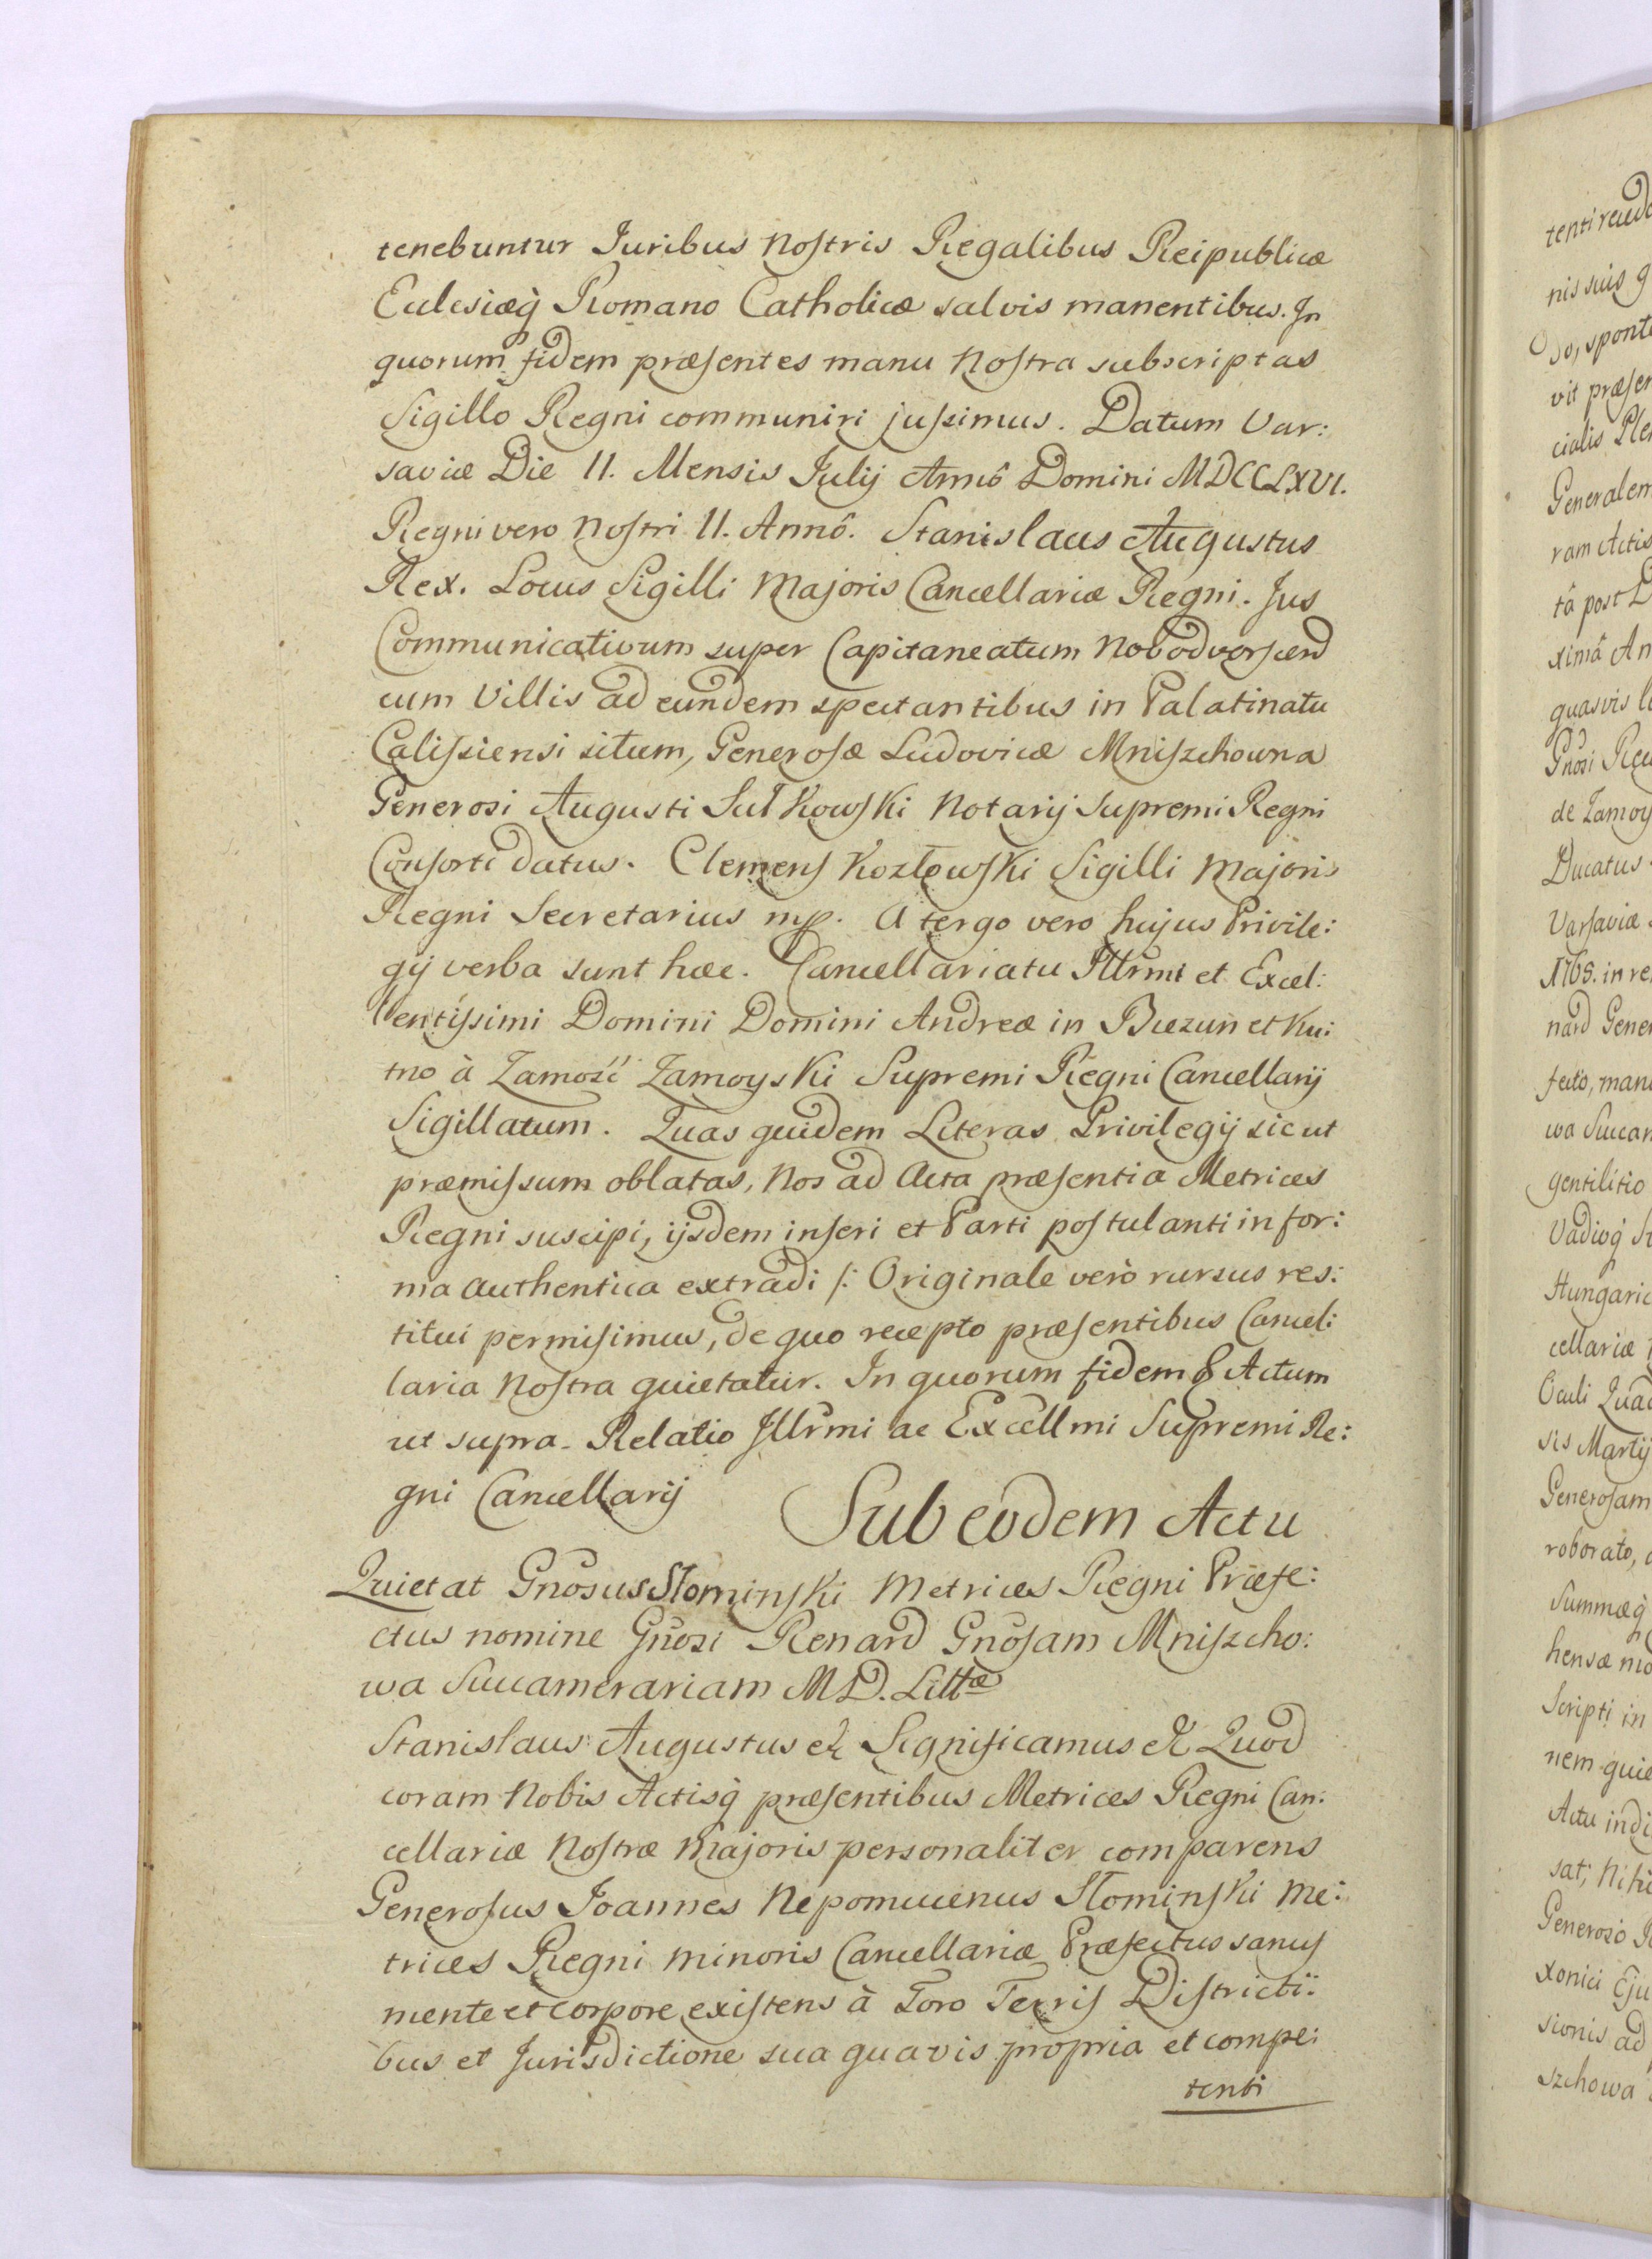 tenebuntur Juribus Nostris Regalibus Reipublicæ
Eclesiæq̀ Romano Catholicæ salvis manentibus. In
quorum fidem præsentes manu Nostra subscriptas
Sigillo Regni communiri jussimus. Datum Var:
saviæ Die 11. Mensis Julij Annô Domini MDCCLXVI.
Regni vero Nostri 11. Annô. Stanislaus Augustus
Rex. Locus Sigilli Majoris Cancellariæ Regni. Jus
Communicativum super Capitaneatum
cum Villis ad eundem spectantibus in Palatinatu
Calissiensi situm, Generosæ Ludovicæ Mniszchowna
Generosi Augusti Sułkowski Notarij Supremi Regni
Consorti datus. Clemens Kozłowski Sigilli Majoris
Regni Secretarius mp. A tergo vero hujus Privile:
gij verba sunt hæc. Cancellariatu Illrmi et Excel:
lentissimi Domini Domini Andreæ in Biezun et Ku:
tno à Zamość Zamoyski Supremi Regni Cancellarij
Sigillatum. Quas quidem Literas Privilegij sicut
præmissum oblatas, Nos ad Acta præsentia Metrices
Regni suscipi, ijsdem inseri et Parti postulanti in for:
ma authentica extradi /: Originale verò rursus res:
titui permisimus, de quo recepto præsentibus Cancel:
laria Nostra quietatur. In quorum fidem & Actum
ut supra. Relatio Illrmi ac Excellmi Supremi Re:
gni Cancellarij
Sub eodem Actu
Quietat Gnosus Słominski Metrices Regni Præfe:
ctus nomine Gnosi Renard Gnosam Mniszcho:
wa Succamerariam M.D. Littæ
Stanislaus Augustus & Significamus & Quod
coram Nobis Actisq̀ præsentibus Metrices Regni Can:
cellariæ Nostræ Majoris personaliter comparens
Generosus Joannes Nepomucenus Słominski Me:
trices Regni minoris Cancellariæ Præfectus sanus
mente et corpore existens à Foro Terris Districti:
bus et Jurisdictione sua quavis propria et compe:
tenti